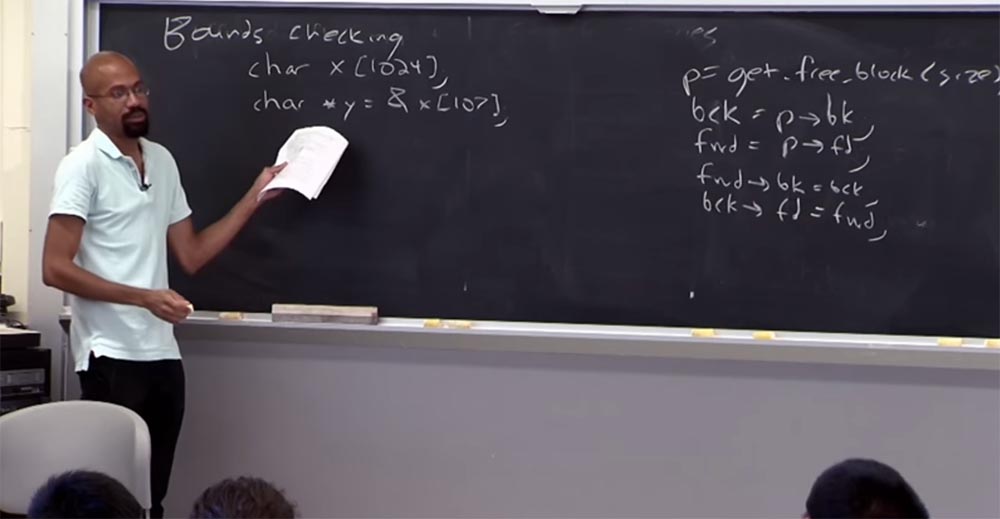 Bounds checking
char x [1024];
char *y = & x [107];
p = get_free_block (size)
bck = p → bk;
fwd = p → fd;
fwd → bk = bck
bck → fd = fwd;